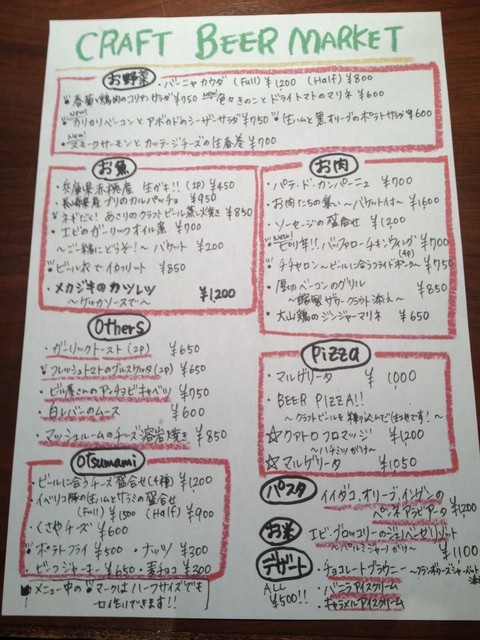 CRAFT BEER MARKET
お野菜
・バーニャカウダ (Full) ¥1200 (Half) ¥800
春菊と鶏肉のコリアンサラダ ¥950 New! 色々きのことドライトマトのマリネ ¥600
・カリカリベーコンとアボカドのシーザーサラダ ¥950 ・生ハムと黒オリーブのポテトサラダ ¥600
New!
・スモークサーモンとカッテージチーズの生春巻 ¥700
お魚
・兵庫県赤穂産 生ガキ!! (2P) ¥450
・長崎県産ブリのカルパッチョ ¥950
・ネギだく! あさりのクラフトビール蒸し焼き ¥850
・エビのガーリックオイル煮 ¥700
〜ご一緒にどうぞ!〜 バケット ¥200
・ビール衣でイカフリット ¥850
・メカジキのカツレツ ¥1,200
お肉
・パテ・ド・カンパーニュ ¥700
・お肉たちの集い 〜バケット付 〜 ¥1600
・ソーセージの盛合せ ¥1,200
New!
・ピリ辛!! バッファローチキンウィング ¥700
(4P)
・チチャロン〜ビールに合うフライドポーク〜 ¥750
・厚切ベーコンのグリル ¥850
〜自家製ザワークラウト添え〜
・大山鶏のジンジャーマリネ ¥650
Others
・ガーリックトースト (2P) ¥650
フレッシュトマトのブルスケッタ (2P) ¥650
・ビール屋さんのアンチョビキャベツ ¥750
・白レバーのムース ¥600
・マッシュルームのチーズ溶岩焼き ¥850
Pizza
・マルゲリータ ¥ 1000
BEER PIZZA!!
〜クラフトビールを練り込んだ生地です!〜
☆クアトロ フロマッジ ¥1200
〜ハチミツがけ〜
☆マルゲリータ ¥1050
Otsumami
・ビールに合うチーズ盛合せ (4種) ¥1200
・イベリコ豚の生ハムとサラミの盛合せ
(Full) ¥1500 (Half) ¥900
・くさやチーズ ¥600
ポテトフライ ¥500 ・ナルツ ¥300
・ビーフジャーキー ¥650 ・麦チョコ ¥300
メニュー中の マークはハーフサイズでも
パスタ
イイダコ、オリーブ、インゲンの
ペンネアラビアータ ¥1,200
お米
エビ・ブロッコリーのジェノベーゼリゾット
¥1100
デザート
・チョコレートブラウニー
ALL
¥500!!
・バニラアイスクリーム
・キャラメルアイスクリーム